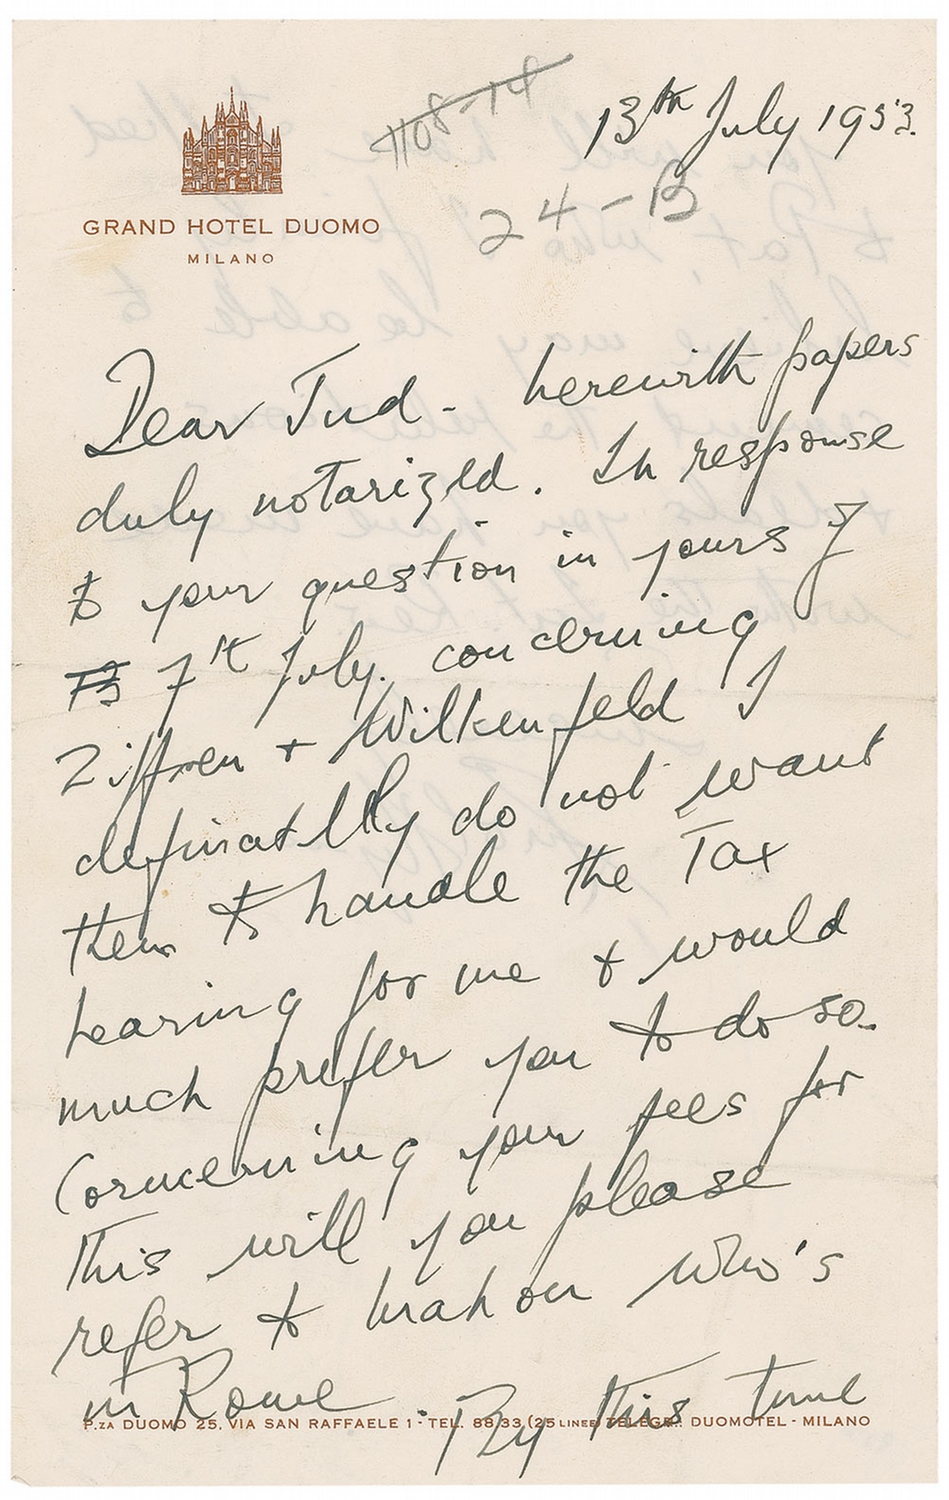 1108-14
13th July 1953.
24-B
GRAND HOTEL DUOMO
MILANO
Dear Jud - herewith papers
duly notarized. In response
to your question in yours of
7th July. concerning
Ziffren + Wilkenfeld I
definatelly do not want
them to handle the Tax
hearing for me & would
much prefer you to do so.
Corncerning your fees for
this will you please
refer to who's
in Rome. By this time
P.ZA DUOMO 25, VIA SAN RAFFAELE 1 · TEL. 88 33 (25 LINEE) TELEGR.: DUOMOTEL - MILANO